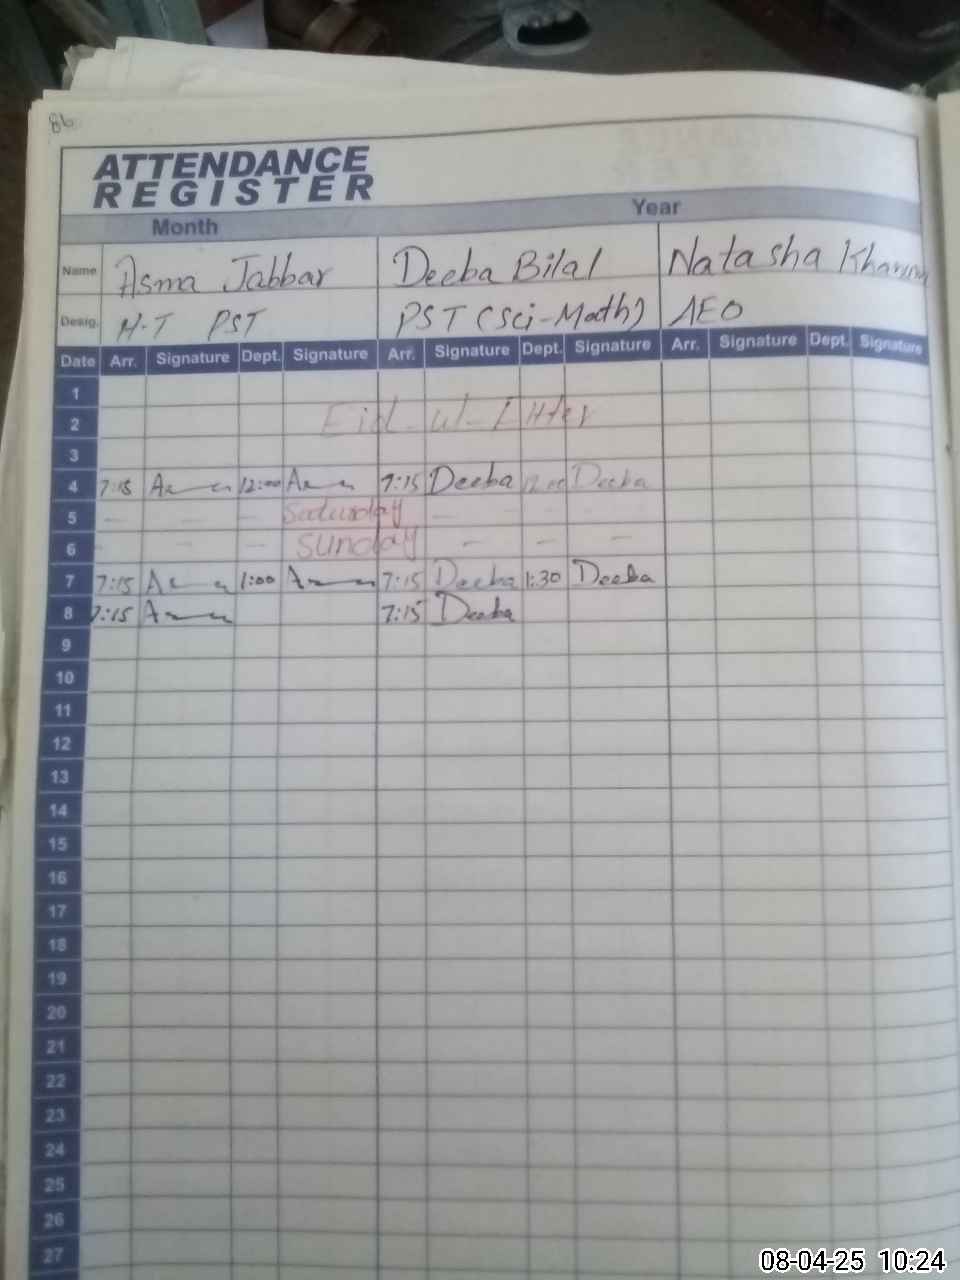 86
ATTENDANCE
REGISTER
Month Year
Name Asma Jabbar Deeba Bilal Natasha
Desig. H-T PST PST (Sci-Math) AEO
Date Arr. Signature Dept. Signature Arr. Signature Dept. Signature Arr. Signature Dept. Signature
1
2 Eid-ul-Fitter
3
4 7:15 12:00 7:15 Deeba 12:00 Deeba
5 - - - Saturday - - -
6 - - - Sunday - - -
7 7:15 1:00 7:15 Deeba 1:30 Deeba
8 7:15 7:15 Deeba
9
10
11
12
13
14
15
16
17
18
19
20
21
22
23
24
25
26
27
08-04-25 10:24